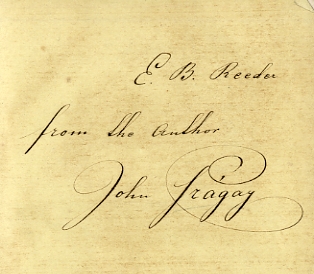 E. B. Reeder
from the Author
John Gágay